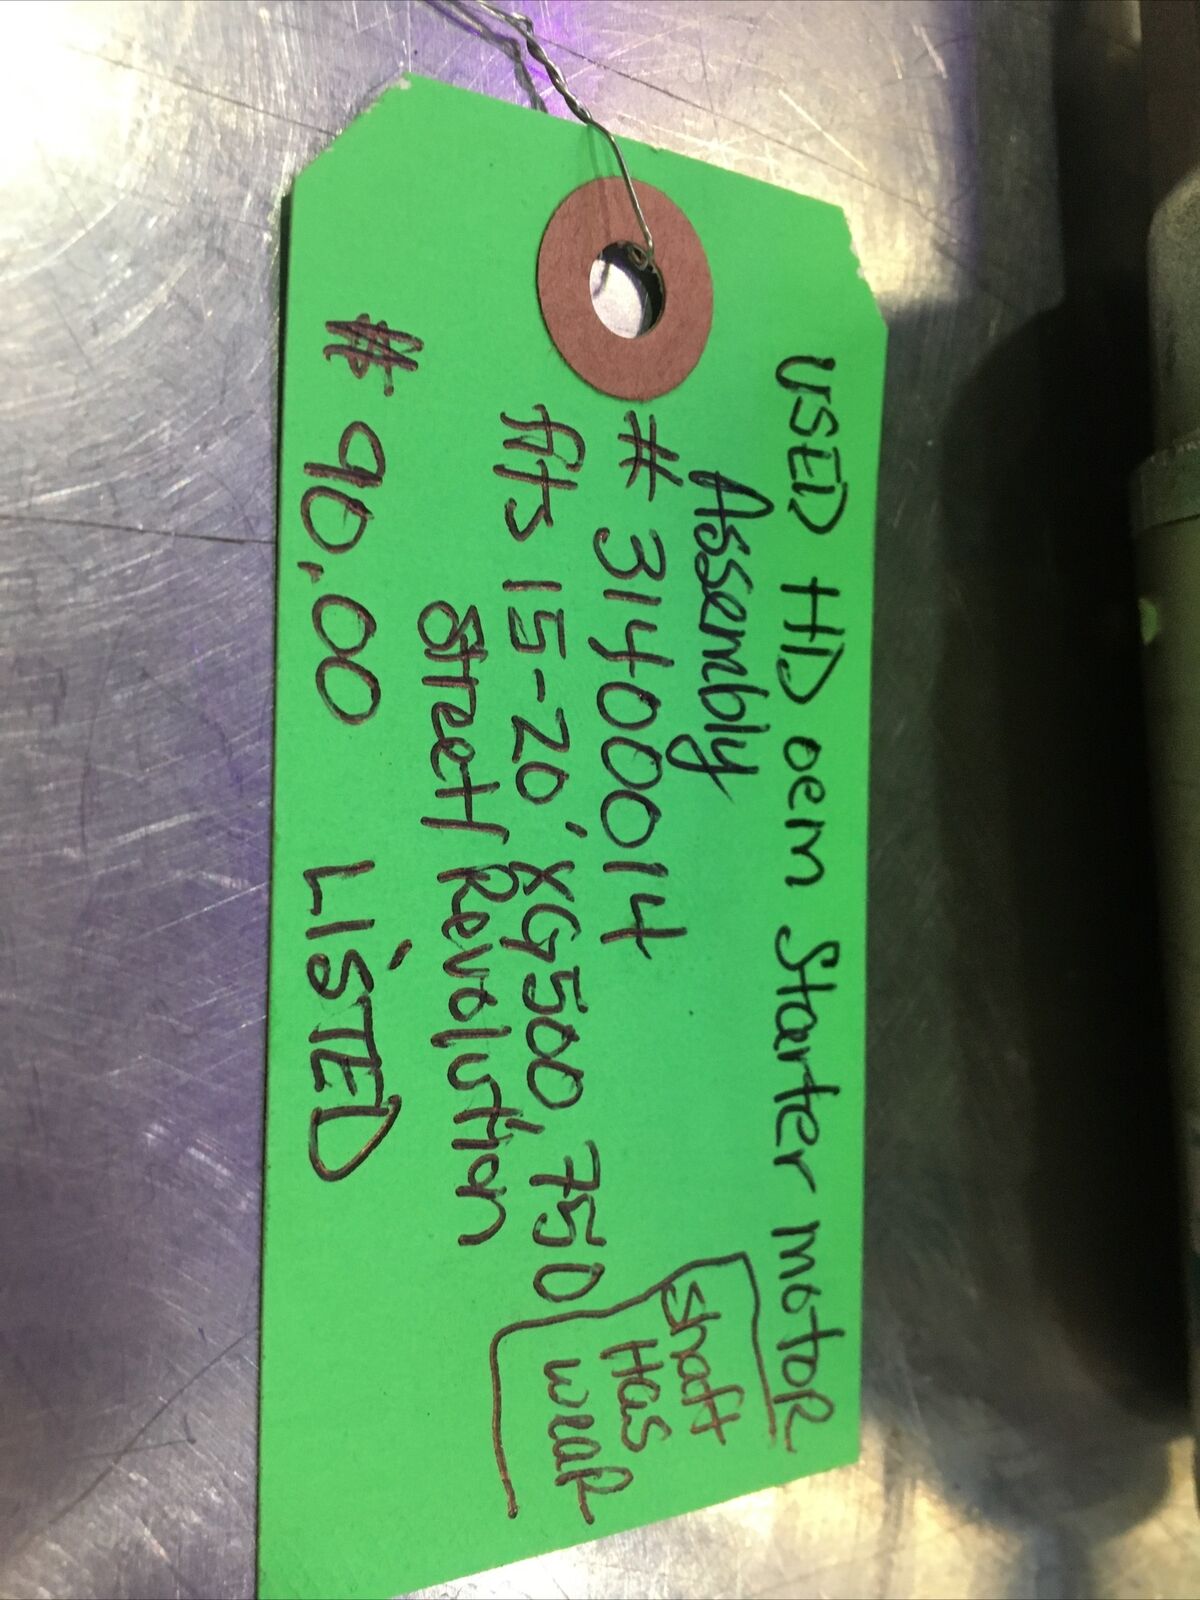 USED HD oem Starter motoR
Assembly
# 31400014
fits 15-20' XG500, 750
Street/Revolution
$ 90.00 LiSTED
Shaft
Has
weaR